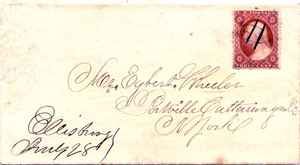 POSTAGE
11
THREE CENTS
Mr Egbert Wheeler
Portville Cattaraugus Co
N York
Ellisburg
July 28